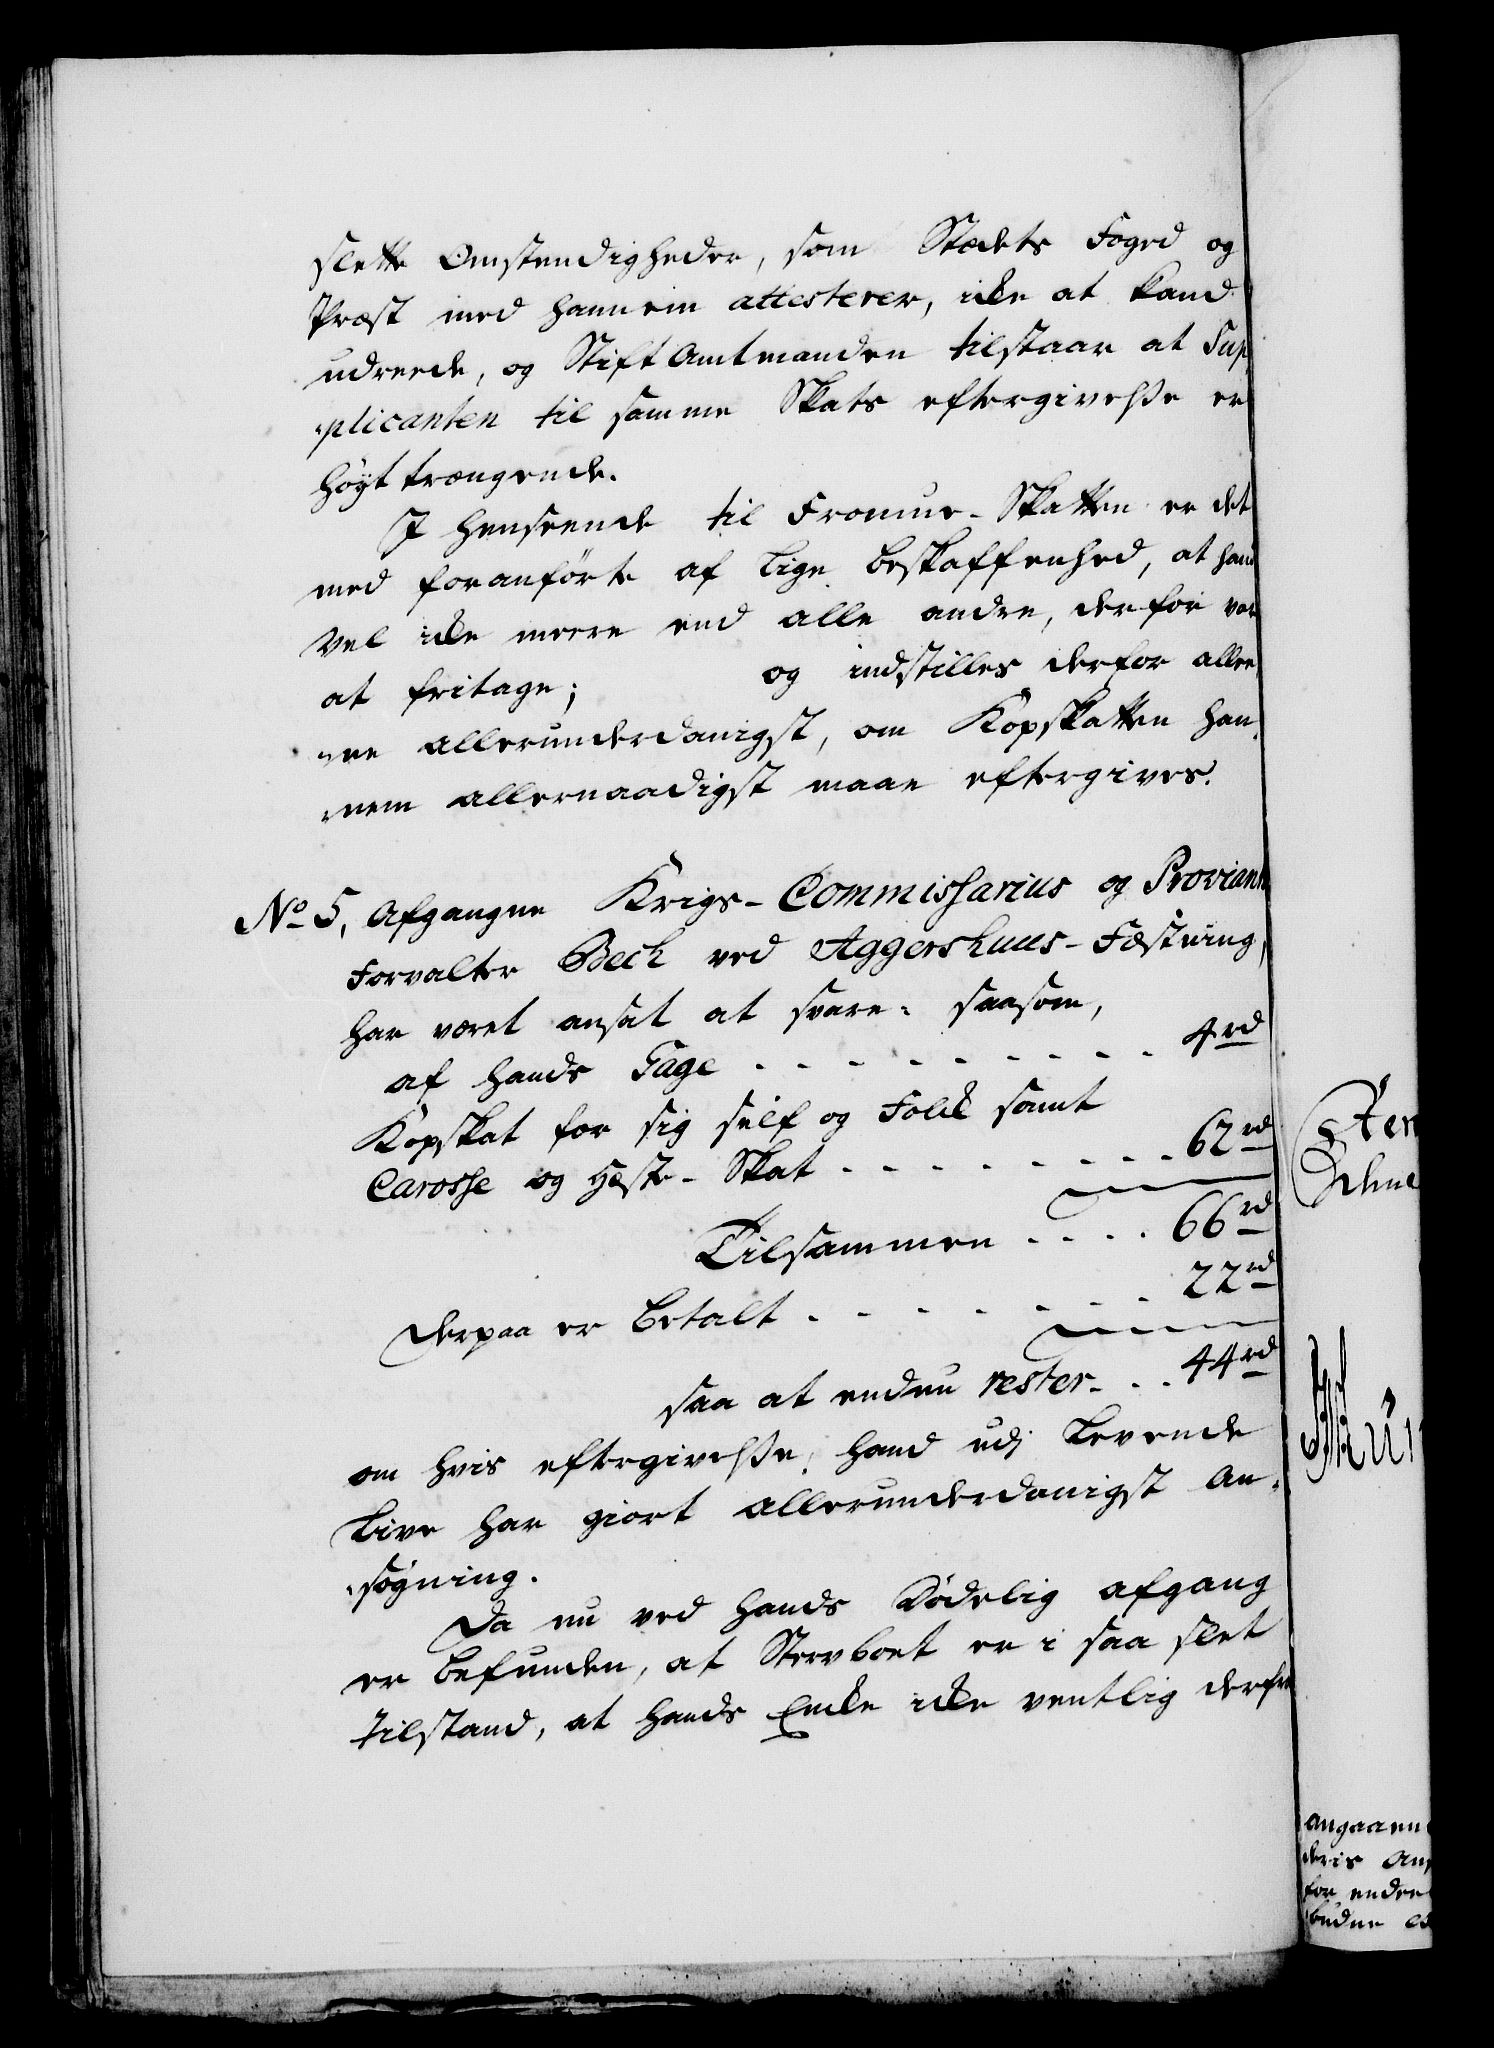 slette Omstendigheder, som Stædets Foged og
Præst med hannem attesterer, icke at kand
udreede, og Stift Amtmanden tilstaar at Sup-
plicanten til samme Skats eftergivelsse er
høyt trængende.
I henseende til Formue-Skatten er det
med foranførte af lige beskaffenhed, at hand
vel icke meere end alle andre, derfor var
at fritage; og indstilles derfor allee-
nee allerunderdanigst, om Kopskatten han-
nem allernaadigst maae eftergives.
No 5, Afgangne Krigs-Commissarius og Proviant
Forvalter Beck ved Aggershuus-Fæstning,
har været ansat at svare: saasom,
af hands Gage . . . . . . . . . 4 rd
Kopskat for sig self og Folck samt
Carosse og Hæste-Skat . . . . . . . . 62 rd
Tilsammen . . . . 66 rd
Derpaa er betalt . . . . . . . . 22 rd
saa at endnu rester . . . 44 rd
om hvis eftergivelsse, hand udj Levende
Live har giort allerunderdanigst An-
søgning.
Da nu ved hands Dødelig afgang
er befunden, at Stervboet er i saa slet
tilstand, at hands Encke icke ventlig derfra
angaaen
deris An
for endee
budne